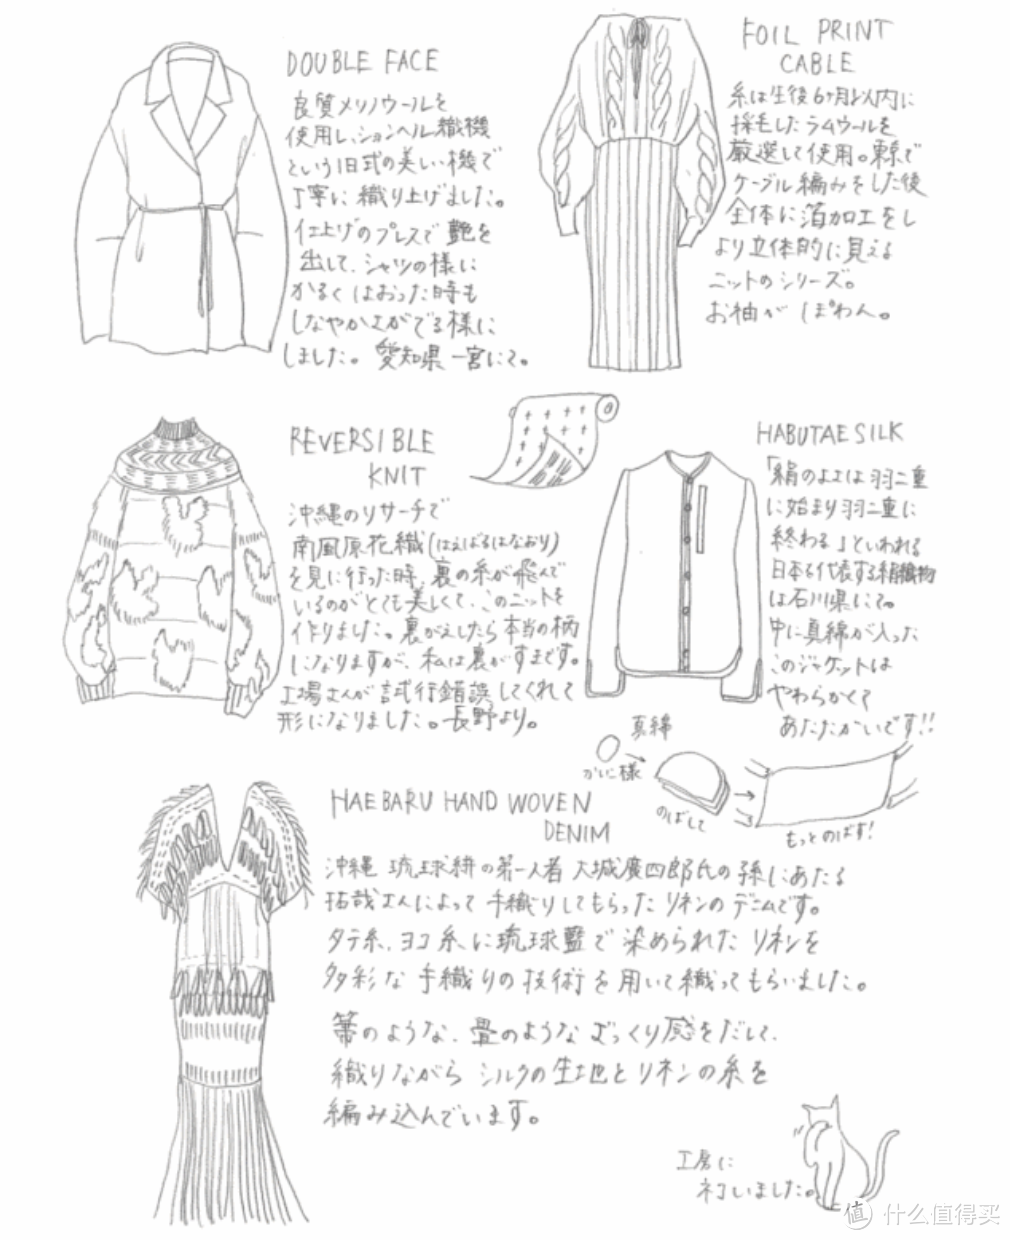 DOUBLE FACE
良質メリノウールを
使用し、ションヘル織機
という旧式の美しい機で
丁寧に織り上げました。
仕上げのプレスで艶を
出して、シャツの様に
かるくはおった時も
しなやかさがでる様に
しました。愛知県一宮にて。
FOIL PRINT
CABLE
糸は生後6ヶ月以内に
採毛したラムウールを
厳選して使用。東京で
ケーブル編みをした後
全体に箔加工をし
より立体的に見える
ニットのシリーズ。
お袖がぽわん。
REVERSIBLE
KNIT
沖縄のリサーチで
南風原花織(はえばるはなおり)
を見に行った時、裏の糸が飛んで
いるのがとても美しくて、このニットを
作りました。裏がえしたら本当の柄
になりますが、私は裏がすきです。
工場さんが試行錯誤してくれて
形になりました。長野より。
HABUTAE SILK
「絹のよさは羽二重
に始まり羽二重に
終わる」といわれる
日本を代表する絹織物
は石川県にて。
中に真綿が入った
このジャケットは
やわらかくて
あたたかいです!!
真綿
かいこ様
のばして
もっとのばす!
HAEBARU HAND WOVEN
DENIM
沖縄 琉球絣の第一人者 大城廣四郎氏の孫にあたる
拓哉さんによって手織りしてもらったリネンのデニムです。
タテ糸、ヨコ糸に琉球藍で染められたリネンを
多彩な手織りの技術を用いて織ってもらいました。
箒のような、畳のようなざっくり感をだして、
織りながらシルクの生地とリネンの糸を
編み込んでいます。
工房に
ネコいました。
值 什么值得买